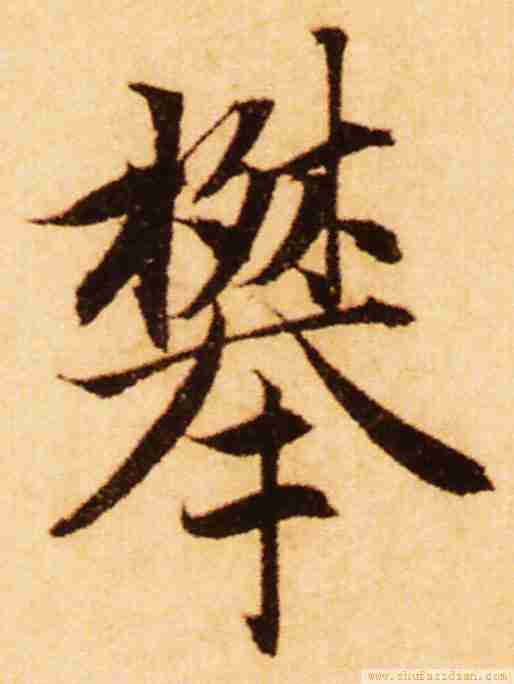 攀
www.shufazidian.com